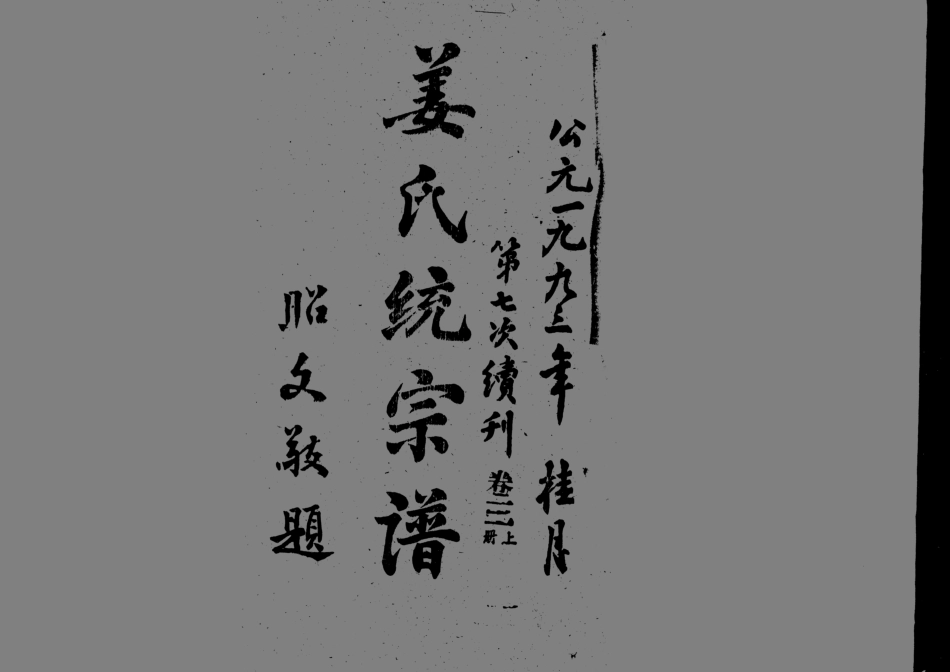 公元一九九三年 桂月
第七次續刊 卷三 上册
姜氏统宗谱
昭文敬題